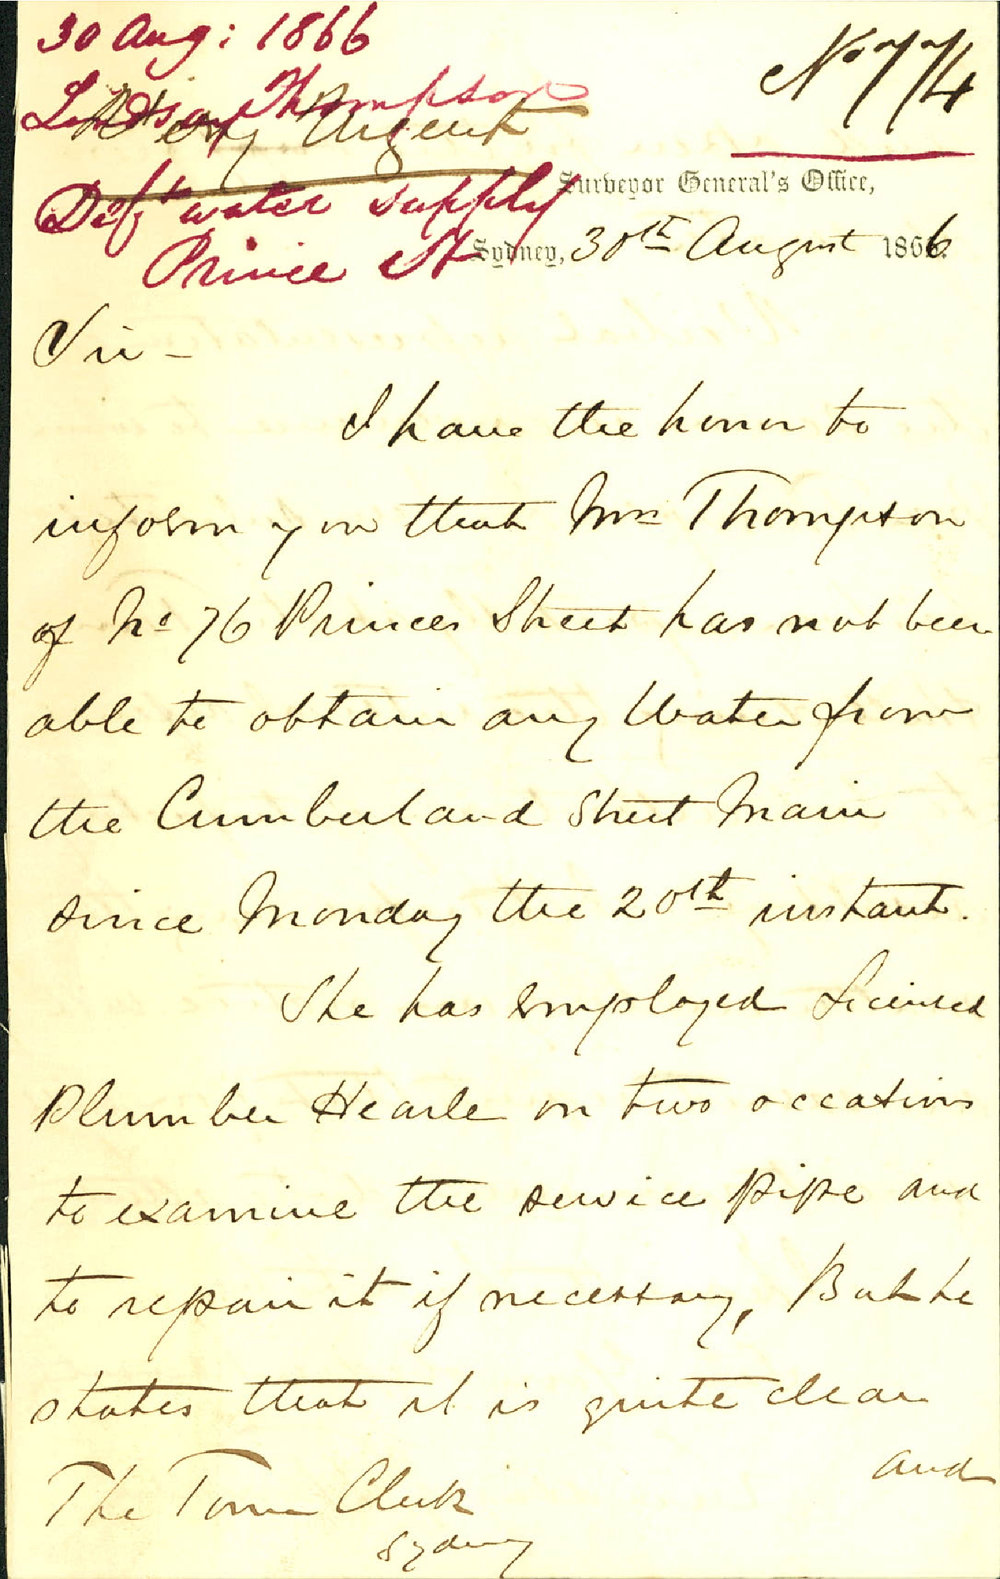 30 Aug: 1866
No 774
Lindsay Thompson
Very Urgent
Surveyor General's Office,
Deft water supply
Sydney, 30th August 1866.
Prince St
Sir -
I have the honor to
inform you that Mrs Thompson
of No 76 Princes Street has not been
able to obtain any Water from
the Cumberland Street Main
since Monday the 20th instant.
She has employed Licensed
Plumber Hearle on two occasions
to examine the service pipe and
to repair it if necessary, But he
states that it is quite clear
and
The Town Clerk
Sydney